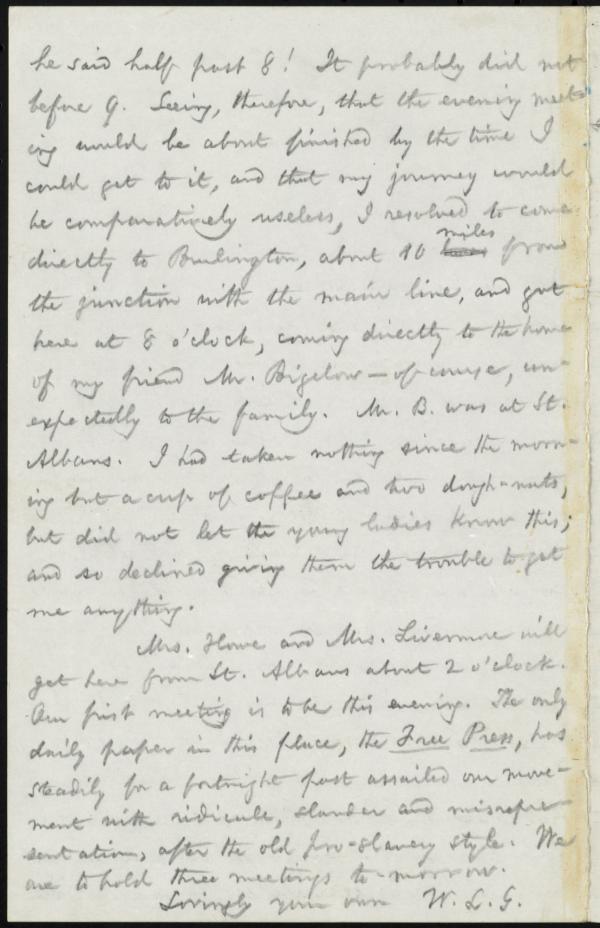 he said half past 8! It probably did not
before 9. Seeing, therefore, that the evening meet-
ing would be about finished by the time I
could get to it, and that my journey would
be comparatively useless, I resolved to come
directly to Burlington, about 10 miles from
the junction with the main line, and got
here at 8 o'clock, coming directly to the home
of my friend Mr. Bigelow — of course, un-
expectedly to the family. Mr. B. was at St.
Albans. I had taken nothing since the morn-
ing but a cup of coffee and two dough-nuts,
but did not let the young ladies know this;
and so declined giving them the trouble to get
me anything.
Mrs. Howe and Mrs. Livermore will
get here from St. Albans about 2 o'clock.
Our first meeting is to be this evening. The only
daily paper in this place, the Free Press, has
steadily for a fortnight past assailed our move-
ment with ridicule, slander and misrepre-
sentation, after the old pro-slavery style. We
are to hold three meetings to-morrow.
Lovingly your own W. L. G.